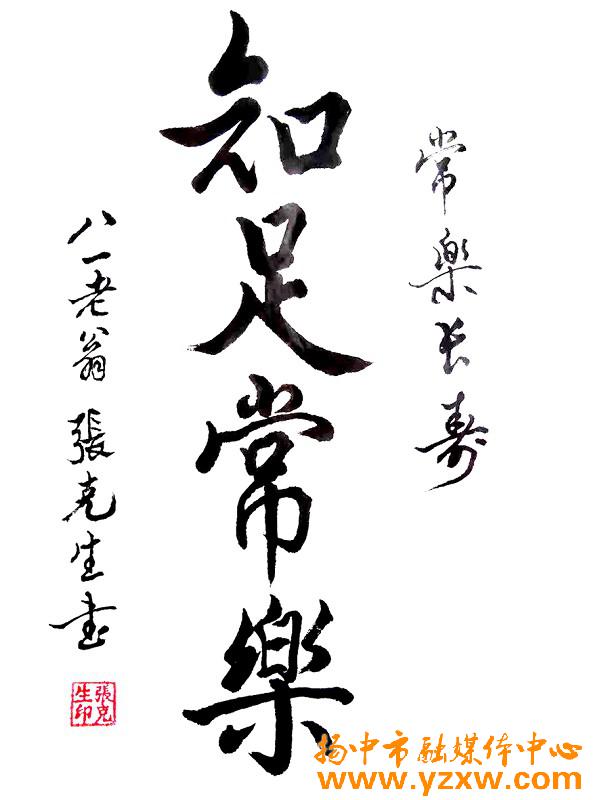 常樂长寿
知足常樂
八一老翁 張克生书
張克生印
扬中市融媒体中心
www.yzxw.com